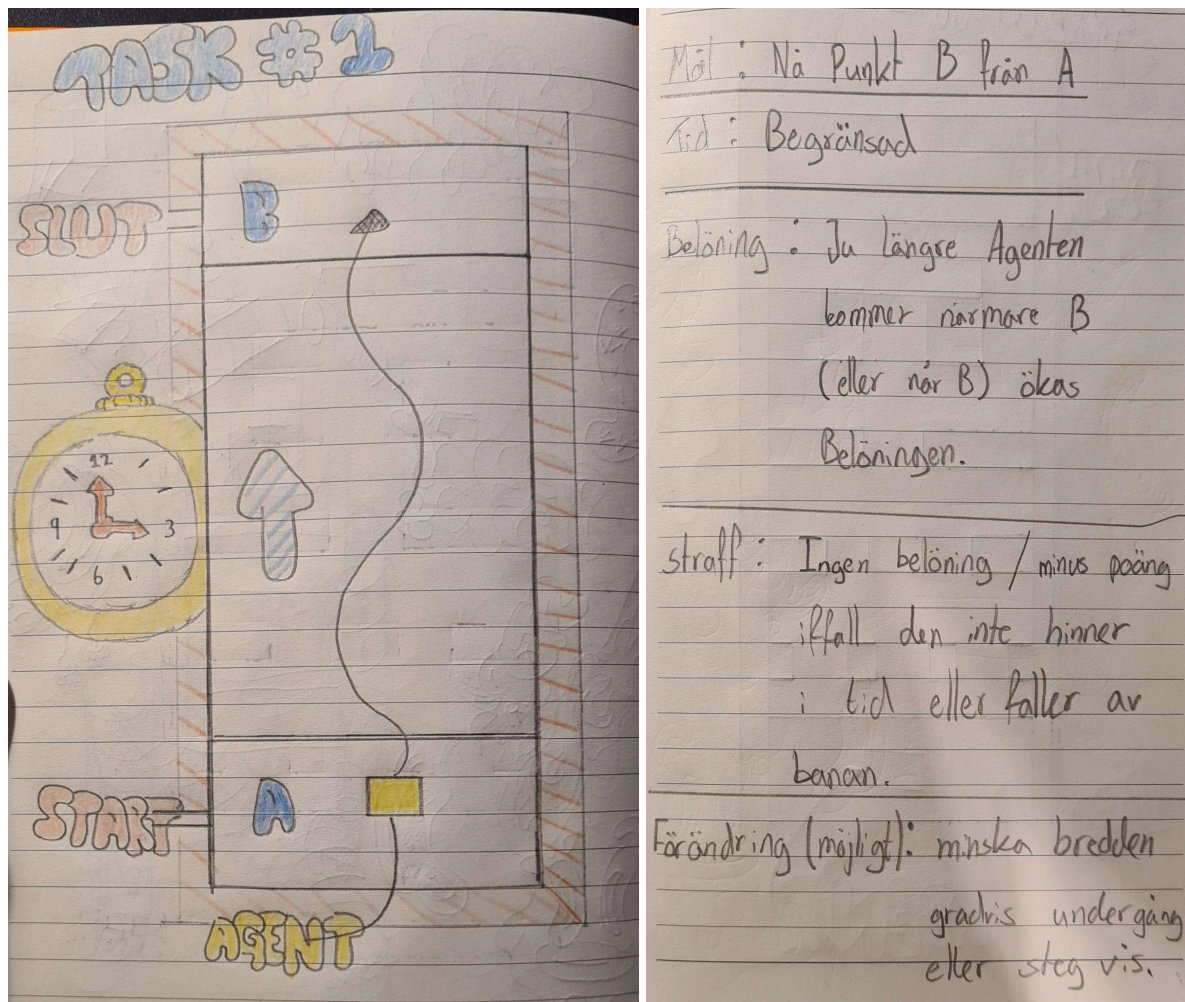 TASK #1
B
SLUT
12
9
3
6
START
A
AGENT
Mål : Nå Punkt B från A
Tid : Begränsad
Belöning : Ju längre Agenten
kommer närmare B
(eller når B) ökas
Belöningen.
straff : Ingen belöning / minus poäng
iffall den inte hinner
i tid eller faller av
banan.
Förändring (möjligt): minska bredden
gradvis undergång
eller steg vis.